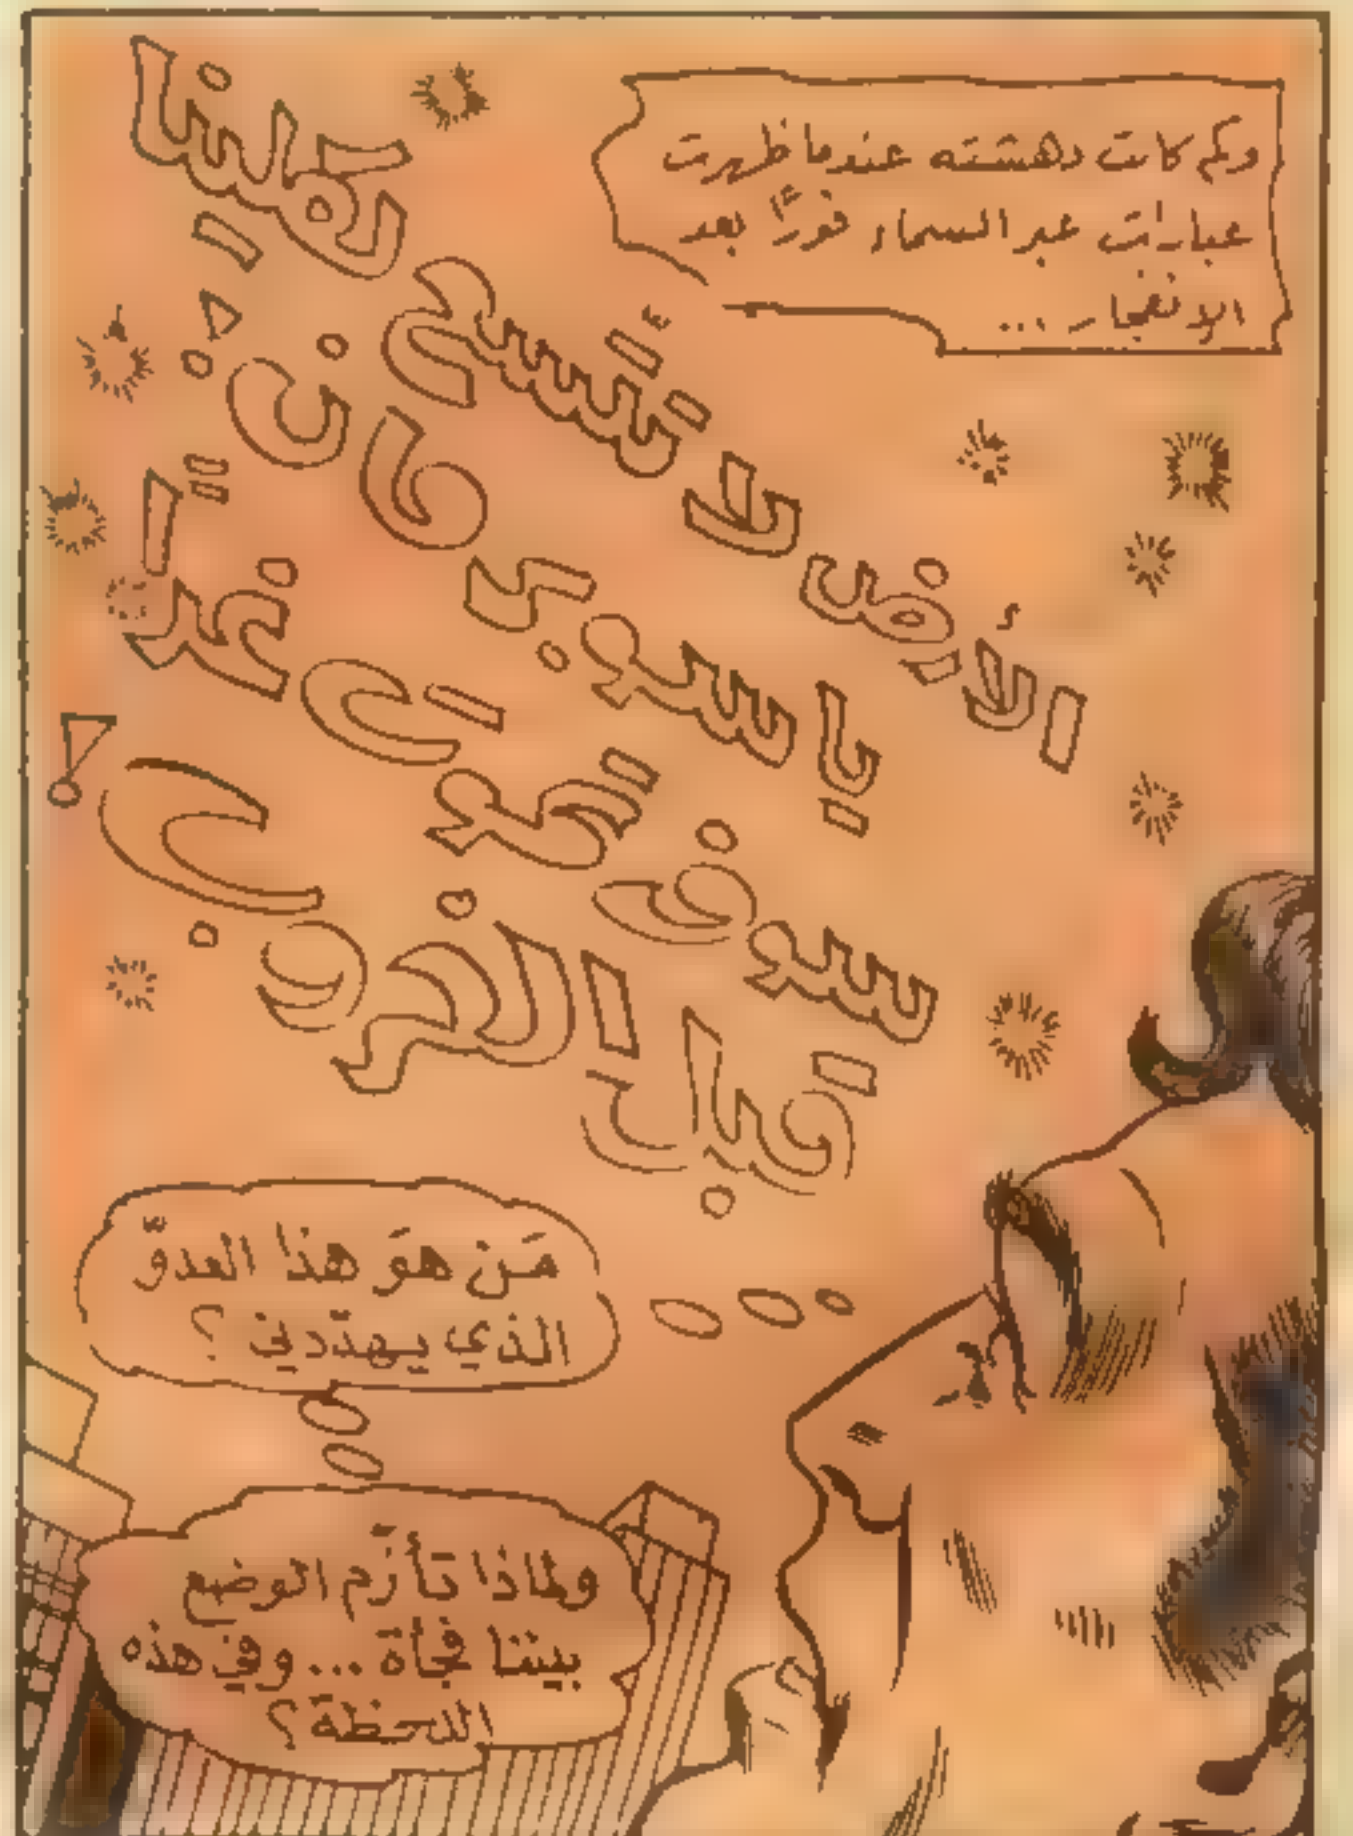 وكم كانت دهشته عندما ظهرت
عبارات عبر السماء فورًا بعد
الانفجار ...
الأرض لا تتّسع لكلينا
يا سوبرمان !
سوف تموت غداً
قبل الغروب !
مَن هوَ هذا العدوّ
الذي يهدّدني ؟
ولماذا تأزّم الوضع
بيننا فجأة ... وفي هذه
اللحظة ؟